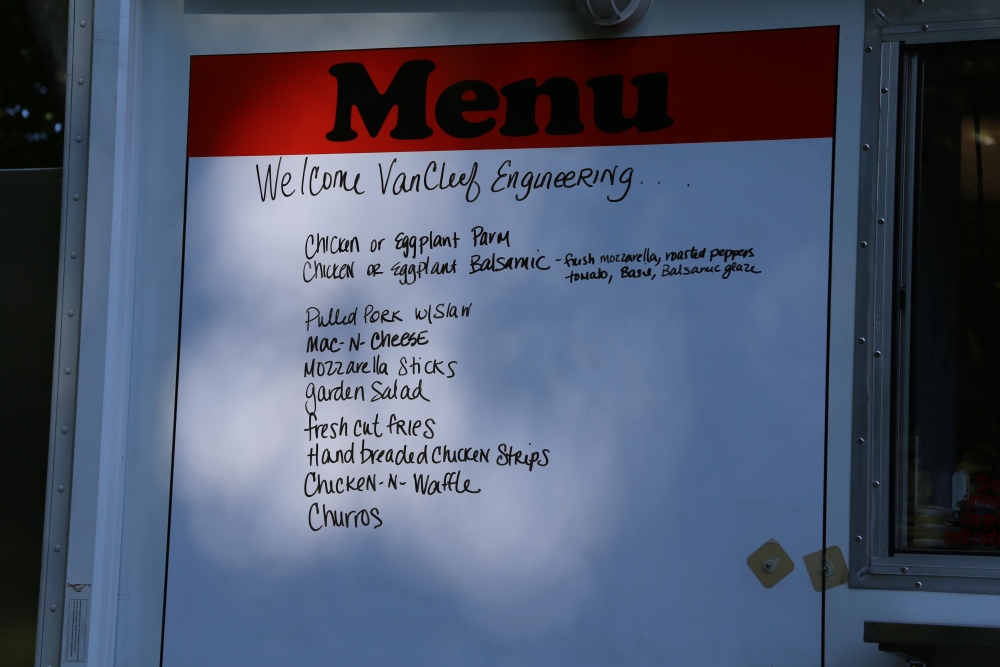 Menu
Welcome VanCleef Engineering. . .
Chicken or Eggplant Parm
Chicken or Eggplant Balsamic - fresh mozzarella, roasted peppers
tomato, Basil, Balsamic glaze
Pulled Pork w/Slaw
Mac-N-Cheese
Mozzarella Sticks
garden Salad
fresh cut fries
Hand breaded Chicken Strips
Chicken-N-Waffle
Churros